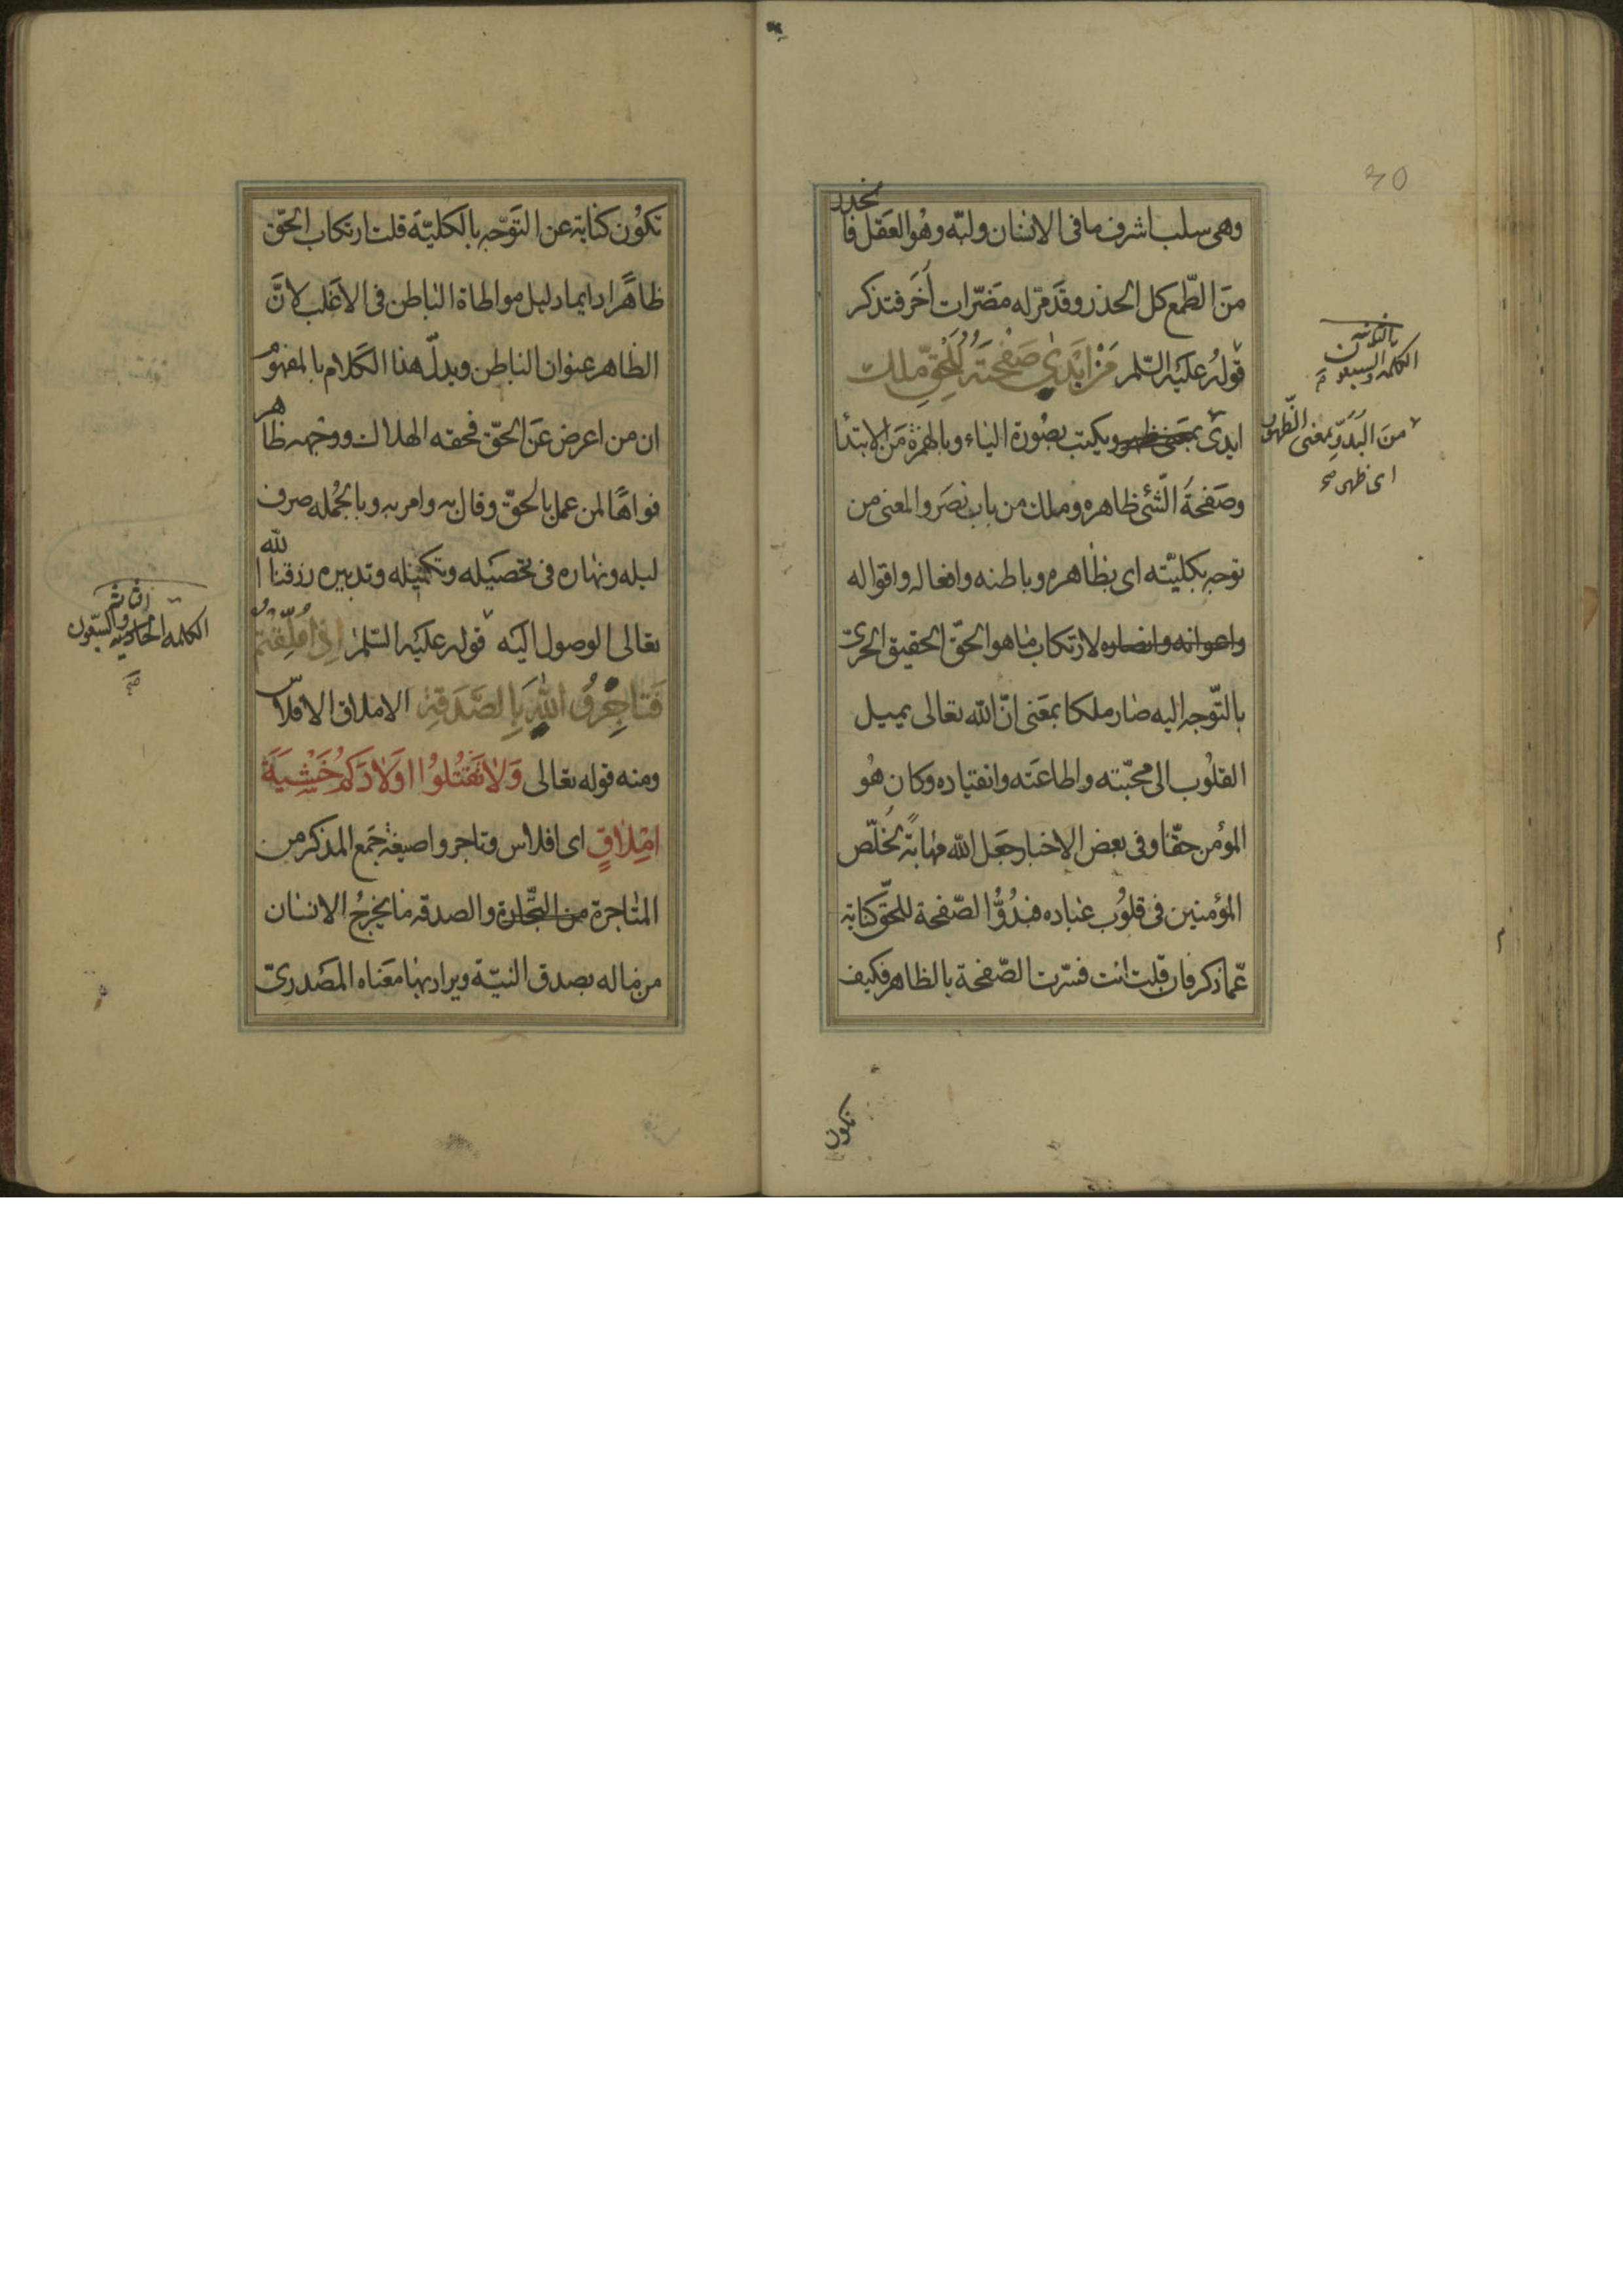 ٣٥
وهى سلب اشرف ما فى الانسان ولبّه وهُو العَقل فا
نحذر
منَ الطّمع كل الحذر وقدَ مرّ له مَضرّات أخَر فتذكر
قولهُ عليَه السّلم مَنْ اَبَدىٰ صَفْحَتَهُ لِلْحَقِّ مَلك
ابدىٰ بمَعنى ظهر ويكتب بصُورة الياء وبالهمزة منَ الابتدأ
وصَفحةُ الشّئ ظاهره وملك من باب نصَر والمعنى من
توجه بكليّته اى بظاهره وباطنه وافعاله واقواله
واعوانه وانصاره لارتكاب ما هو الحقّ الحقيق الحرىّ
بالتّوجه اليه صار ملكا بمَعنى انّ الله تعالى يميل
القلوُب الى محبّته واطاعَته وانقياده وكان هُو
المؤمن حقّا وفى بعض الاخبار جَعل الله مهابَةً لخُلّص
المؤمنين فى قلوُب عباده فبدُوُّ الصّفحة للحَقّ كناية
عمّا ذكر فان قلت انت فسّرت الصّفحة بالظاهر فكيف
تكون
الكلمه السبعون
من البَدَوّ بمعنى الظّهُور
اى ظهر صح
تكوُن كنَاية عن التَوّجه بالكليّة قلت ارتكاب الحَقّ
ظاهًرا دايما دليل مواطاة الباطن فى الاغَلب لانَّ
الظاهر عنوان الباطن ويدلّ هذا الكَلام بالمفهوُم
ان من اعرض عنَ الحَقّ فحقه الهلاك ووجهه ظاهر
فواهًا لمن عمل بالحقّ وقال به وامر به وبالجُمله صرف
ليله ونهاره فى تحصيَله وتكميَله وتدبيره رزقنا الله
تعالى الوصول اليَه قولهُ عليَه السّلم اِذٰا اُمْلِقْتُمْ
فَتٰاجِرُوا اللهَ بِالصَّدَقةِ الاملاق الافلاس
ومنه قوله تعالى وَلاٰ تَقْتُلُوْا اَوْلاٰدَكمُ خَشْيَةَ
اِمْلاٰقٍ اى افلاس وتاجروا صيغة جَمع المذكر من
المتاجرة من التّجَارة والصدقه ما يخرجُ الانسان
من ماله بصدق النيّة ويراد بها معَناه المصَدرىّ
الكلمه الحاديه والسّبعون
صح